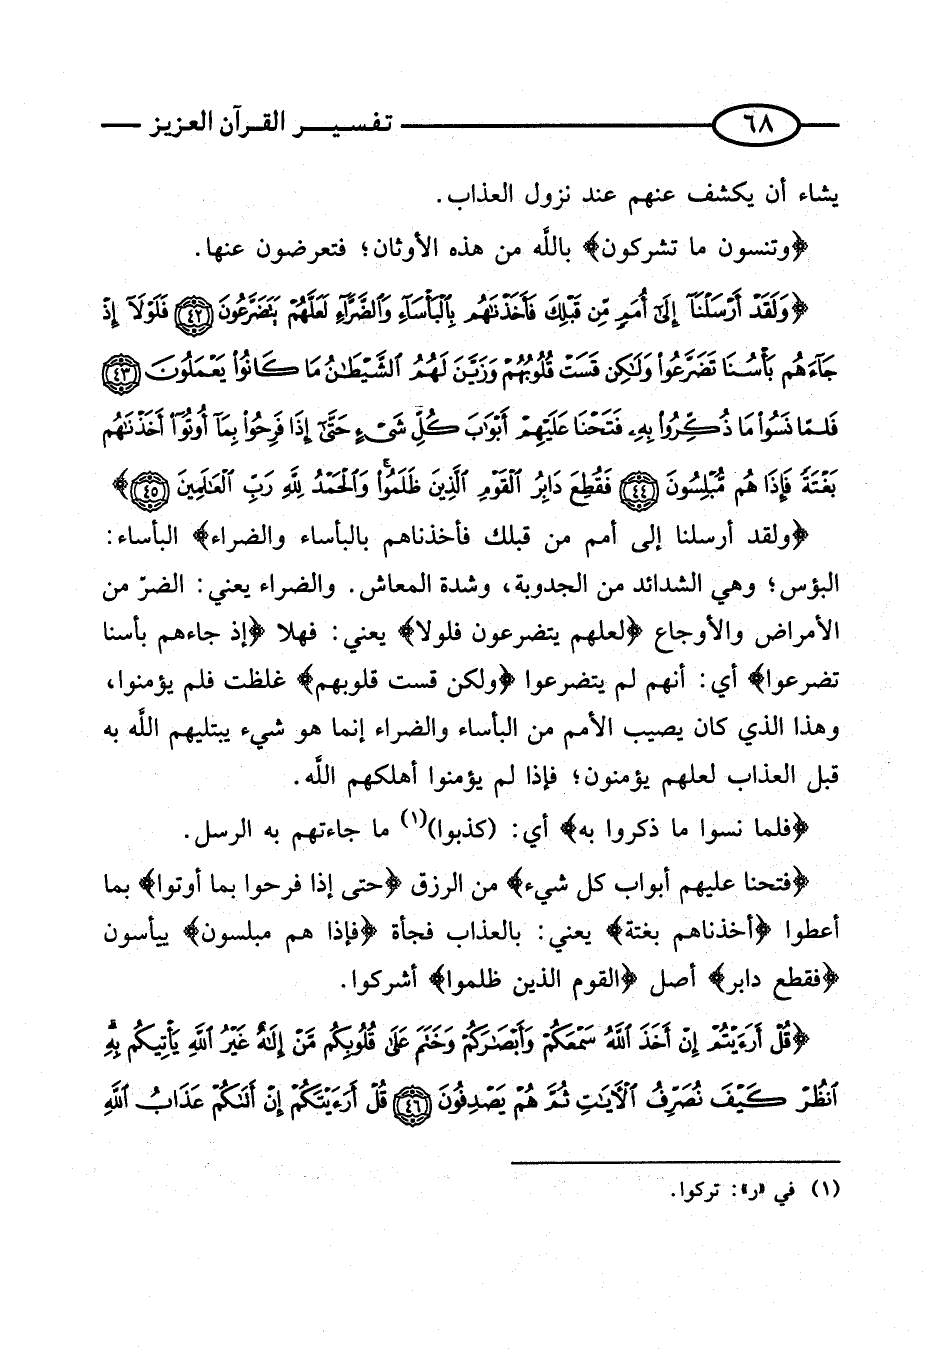 ٦٨ تفسير القرآن العزيز
يشاء أن يكشف عنهم عند نزول العذاب.
﴿وتنسون ما تشركون﴾ باللَّه من هذه الأوثان؛ فتعرضون عنها.
﴿وَلَقَدْ أَرْسَلْنَآ إِلَىٰٓ أُمَمٍ مِّن قَبْلِكَ فَأَخَذْنَٰهُم بِٱلْبَأْسَآءِ وَٱلضَّرَّآءِ لَعَلَّهُمْ يَتَضَرَّعُونَ ٤٢ فَلَوْلَآ إِذْ
جَآءَهُم بَأْسُنَا تَضَرَّعُوا۟ وَلَٰكِن قَسَتْ قُلُوبُهُمْ وَزَيَّنَ لَهُمُ ٱلشَّيْطَٰنُ مَا كَانُوا۟ يَعْمَلُونَ ٤٣
فَلَمَّا نَسُوا۟ مَا ذُكِّرُوا۟ بِهِۦ فَتَحْنَا عَلَيْهِمْ أَبْوَٰبَ كُلِّ شَىْءٍ حَتَّىٰٓ إِذَا فَرِحُوا۟ بِمَآ أُوتُوٓا۟ أَخَذْنَٰهُم
بَغْتَةً فَإِذَا هُم مُّبْلِسُونَ ٤٤ فَقُطِعَ دَابِرُ ٱلْقَوْمِ ٱلَّذِينَ ظَلَمُوا۟ ۚ وَٱلْحَمْدُ لِلَّهِ رَبِّ ٱلْعَٰلَمِينَ ٤٥﴾
﴿ولقد أرسلنا إلى أمم من قبلك فأخذناهم بالبأساء والضراء﴾ البأساء:
البؤس؛ وهي الشدائد من الجدوبة، وشدة المعاش. والضراء يعني: الضرّ من
الأمراض والأوجاع ﴿لعلهم يتضرعون فلولا﴾ يعني: فهلا ﴿إذ جاءهم بأسنا
تضرعوا﴾ أي: أنهم لم يتضرعوا ﴿ولكن قست قلوبهم﴾ غلظت فلم يؤمنوا،
وهذا الذي كان يصيب الأمم من البأساء والضراء إنما هو شيء يبتليهم اللَّه به
قبل العذاب لعلهم يؤمنون؛ فإذا لم يؤمنوا أهلكهم اللَّه.
﴿فلما نسوا ما ذكروا به﴾ أي: (كذبوا)(١) ما جاءتهم به الرسل.
﴿فتحنا عليهم أبواب كل شيء﴾ من الرزق ﴿حتى إذا فرحوا بما أوتوا﴾ بما
أعطوا ﴿أخذناهم بغتة﴾ يعني: بالعذاب فجأة ﴿فإذا هم مبلسون﴾ ييأسون
﴿فقطع دابر﴾ أصل ﴿القوم الذين ظلموا﴾ أشركوا.
﴿قُلْ أَرَءَيْتُمْ إِنْ أَخَذَ ٱللَّهُ سَمْعَكُمْ وَأَبْصَٰرَكُمْ وَخَتَمَ عَلَىٰ قُلُوبِكُم مَّنْ إِلَٰهٌ غَيْرُ ٱللَّهِ يَأْتِيكُم بِهِ ۗ
ٱنظُرْ كَيْفَ نُصَرِّفُ ٱلْءَايَٰتِ ثُمَّ هُمْ يَصْدِفُونَ ٤٦ قُلْ أَرَءَيْتَكُمْ إِنْ أَتَىٰكُمْ عَذَابُ ٱللَّهِ
(١) في «ر»: تركوا.